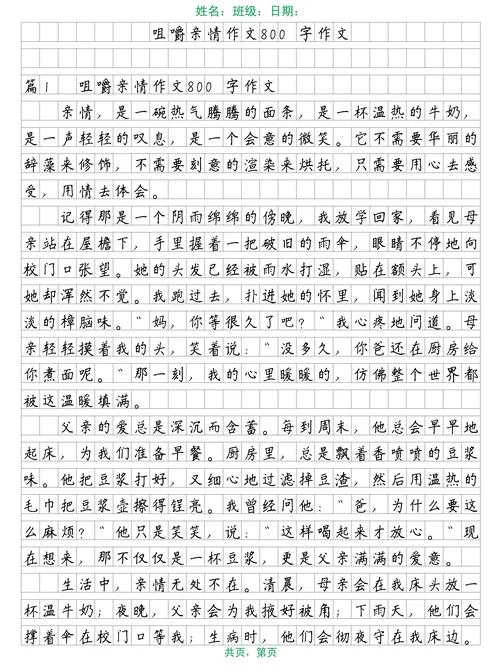 姓名：班级：日期：
咀嚼亲情作文800 字作文
篇1 咀嚼亲情作文800 字作文
亲情，是一碗热气腾腾的面条，是一杯温热的牛奶，
是一声轻轻的叹息，是一个会意的微笑。它不需要华丽的
辞藻来修饰，不需要刻意的渲染来烘托，只需要用心去感
受，用情去体会。
记得那是一个阴雨绵绵的傍晚，我放学回家，看见母
亲站在屋檐下，手里握着一把破旧的雨伞，眼睛不停地向
校门口张望。她的头发已经被雨水打湿，贴在额头上，可
她却浑然不觉。我跑过去，扑进她的怀里，闻到她身上淡
淡的樟脑味。“妈，你等很久了吧？”我心疼地问道。母
亲轻轻摸着我的头，笑着说：“没多久，你爸还在厨房给
你煮面呢。”那一刻，我的心里暖暖的，仿佛整个世界都
被这温暖填满。
父亲的爱总是深沉而含蓄。每到周末，他总会早早地
起床，为我们准备早餐。厨房里，总是飘着香喷喷的豆浆
味。他把豆浆打好，又细心地过滤掉豆渣，然后用温热的
毛巾把豆浆壶擦得锃亮。我曾经问他：“爸，为什么要这
么麻烦？”他只是笑笑，说：“这样喝起来才放心。”现
在想来，那不仅仅是一杯豆浆，更是父亲满满的爱意。
生活中，亲情无处不在。清晨，母亲会在我床头放一
杯温牛奶；夜晚，父亲会为我掖好被角；下雨天，他们会
撑着伞在校门口等我；生病时，他们会彻夜守在我床边。
共页，第页